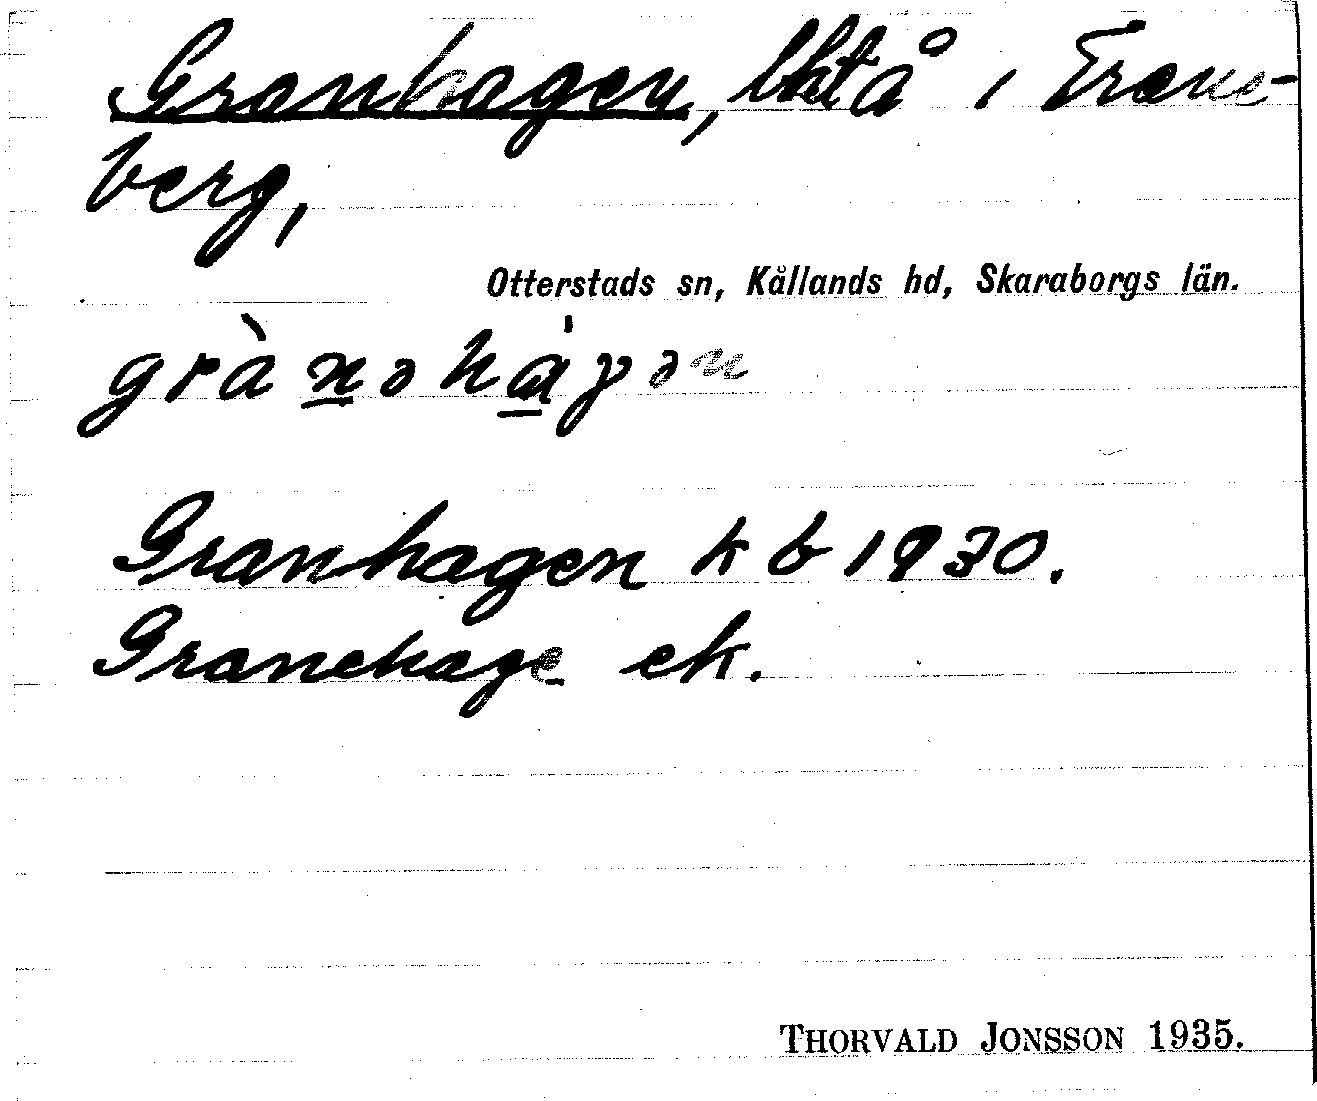 Granhagen, lht å i Traneberg,
Otterstads sn, Kållands hd, Skaraborgs län.
grànəháγən
Granhagen kb 1930.
Granehage ek.
THORVALD JONSSON 1935.